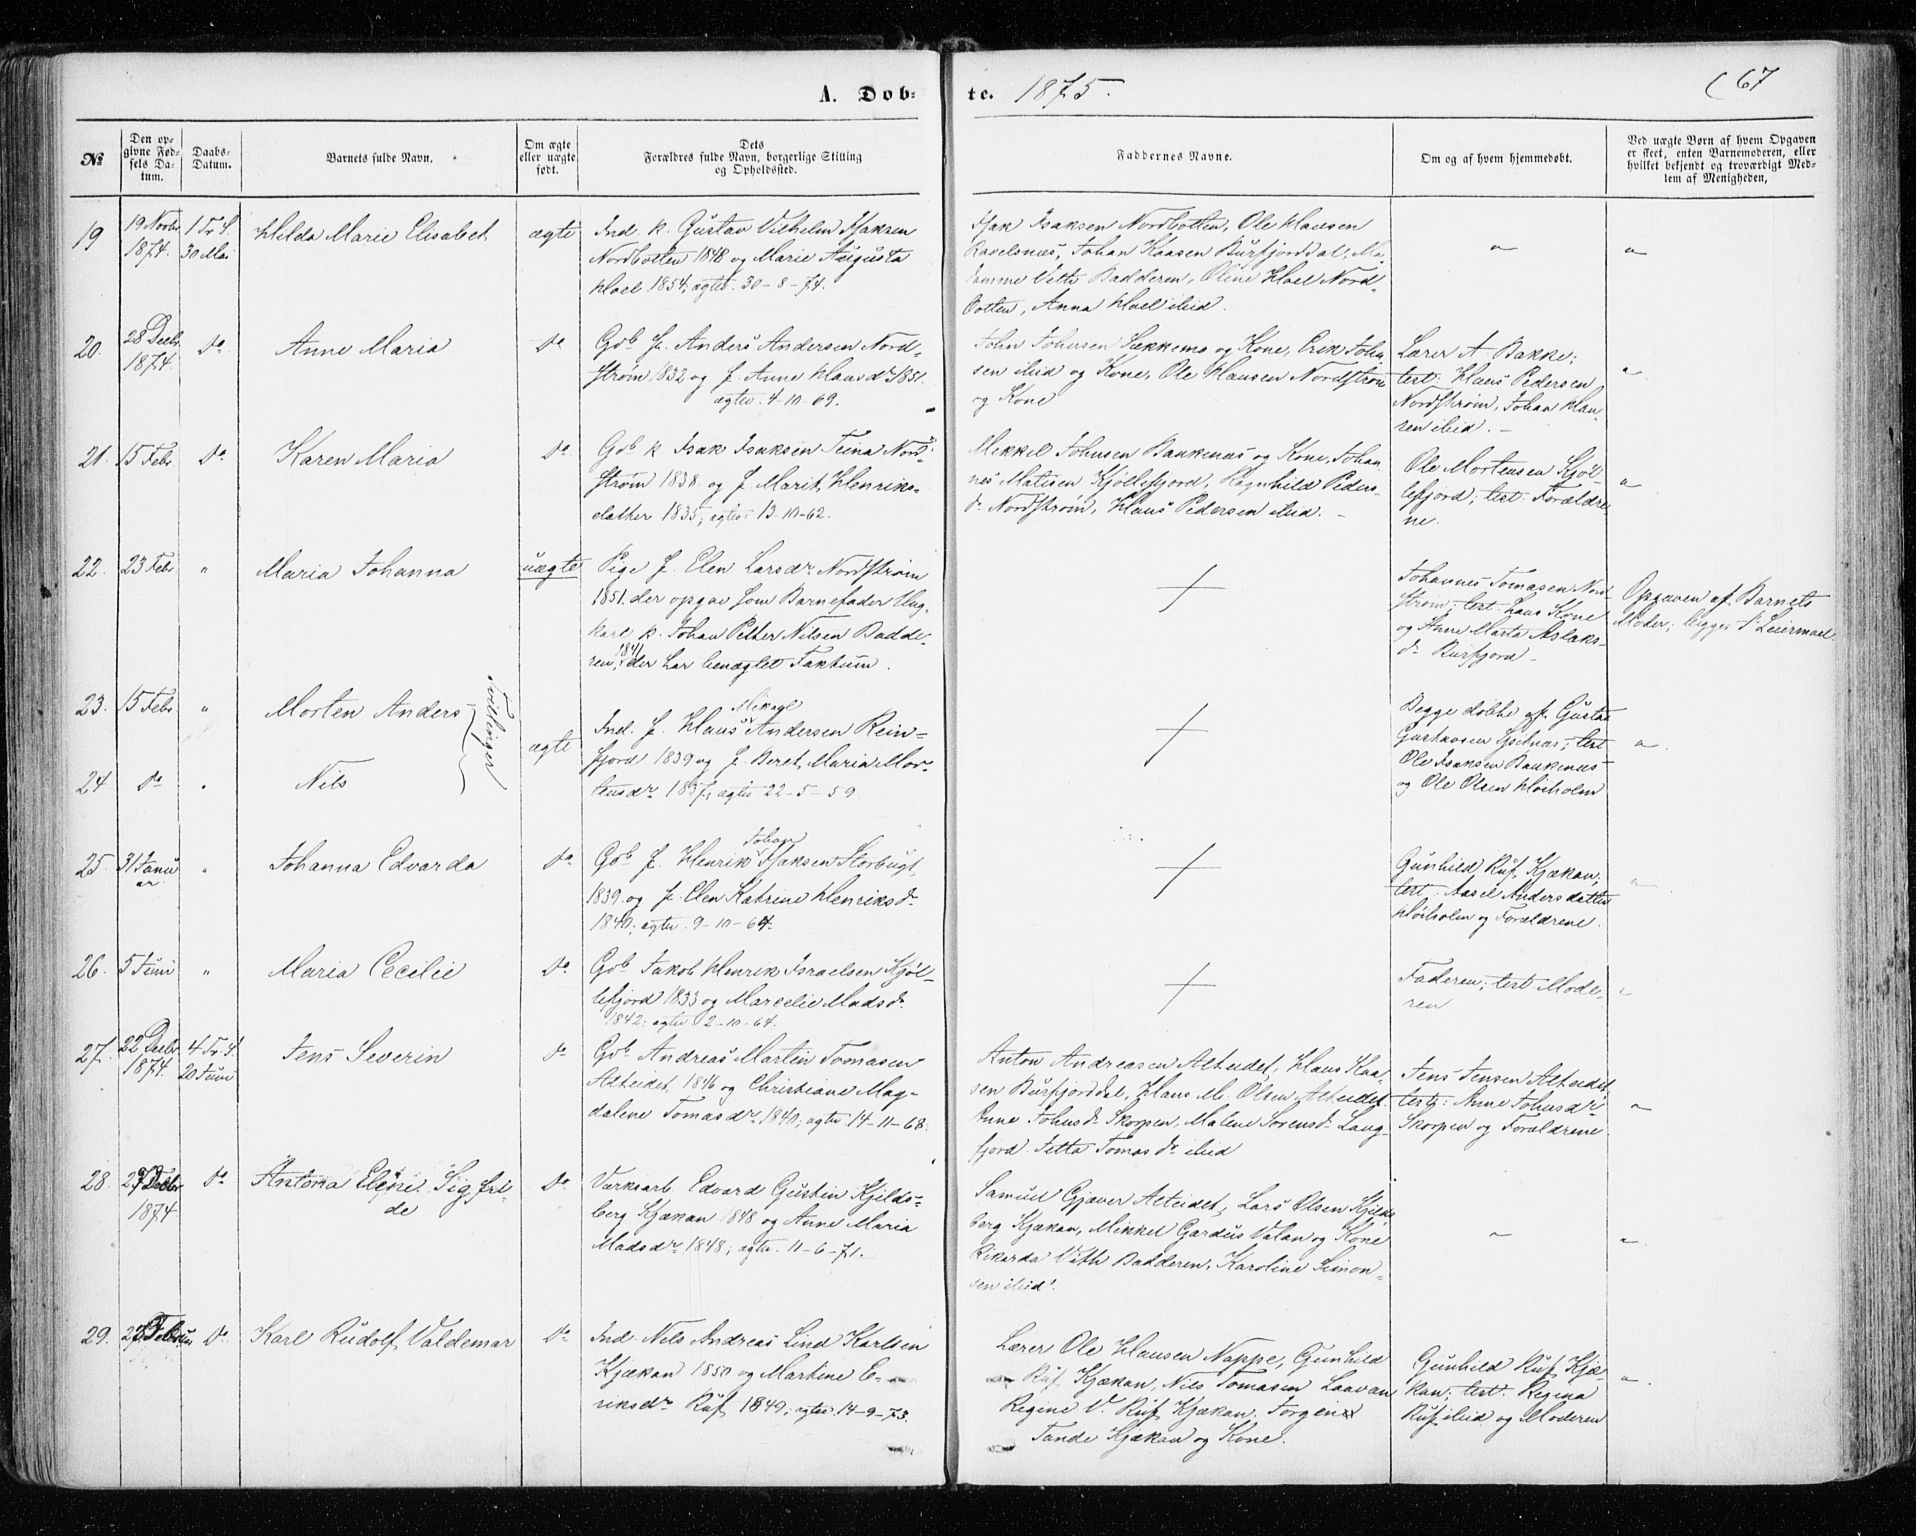 A. Dob-
te. 1875.
67
№
Den op-
givne Fød-
sels Da-
tum.
Daabs-
Datum.
Barnets fulde Navn.
Om ægte
eller uægte
født.
Dets
Forældres fulde Navn, borgerlige Stilling
og Opholdssted.
Faddernes Navne.
Om og af hvem hjemmedøbt.
Ved uægte Børn af hvem Opgaven
er skeet, enten Barnemoderen, eller
hvilket bekjendt og troværdigt Med-
lem af Menigheden,
19
19 Novbr
1874.
1 Tr. S.
30 Mai
Hilda Marie Elisabet
ægte
Ind. k. Gustav Vilhelm Isaksen
Nordbotten 1848 og Marie Augusta
Hoel 1854; ægtev. 30-8-74.
Isak Isaksen Nordbotten, Ole Hansen
Ravelsnæs, Johan Kaasen Burfjorddal, Ma-
damme Vith Badderen, Oline Hoel Nord-
botten, Anna Hoel ibid.
20.
28 Decbr
1874.
do
Anne Maria
do
Gdb. f. Anders Andersen Nord-
strøm 1832 og f. Anne Hansdr 1851.
ægtev. 4-10-69.
John Johnsen Sækkemo og Kone, Erik John-
sen ibid og Kone, Ole Hansen Nordstrøm
og Kone
Lærer A. Bakke;
test: Hans Pedersen
Nordstrøm, Johan Han-
sen ibid. -
21.
15 Febr
do
Karen Maria
do
Gdb k Isak Isaksen Teina Nord-
strøm 1838. og f. Marit Henriks-
datter 1835; ægtev: 13-10-62.
Mikkel Johnsen Baukenæs og Kone, Johan-
nes Matisen Kjøllefjord, Ragnhild Peders-
dr Nordstrøm, Hans Pedersen ibid. -
Ole Mortensen Kjøl-
lefjord; test: Forældre-
ne.
22.
23 Febr
"
Maria Johanna
uægte
Pige f. Elen Larsdr Nordstrøm
1851. der opgav som Barnefader Ung-
karl k. Johan Petter Nilsen Badde-
ren, 1841 der har benægtet Faktum.
Johannes Tomasen Nord-
strøm; test: hans Kone
og Anne Marta Aslaks-
dr Burfjord -
Opgaven af Barnets
Moder; begges 1ste Leiermaal.
23.
15 Febr
"
Morten Anders
Tvillinger
ægte
Ind. f. Hans Mikael Andersen Rein-
fjord 1839 og f. Beret Maria Mor-
tensdr 1837; ægtev 22-5-59
Begge døbte af Gustav
Gustavsen Spitnæs; test
Ole Isaksen Baukenæs
og Ole Olsen Høiholm
24
do
"
Nils
25.
31 Janu
ar
"
Johanna Edvarda
do
Gdb f. Henrik Johan Isaksen Storbugt,
1839 og f. Elen Katrine Henriksdr
1840; ægtev. 9-10-64.
Gunhild Ruf, Kjækan;
test: Aasel Andersdatter
Høiholm og Forældrene.
26.
5 Juni
"
Maria Cecilie
do
Gdb Jakob Henrik Israelsen Kjøl-
lefjord 1833 og Marcelie Madsdr
1842; ægtev 2-10-64.
Faderen; test Mode-
ren
27.
22 Decbr
1874.
4 Tr. S.
20 Juni
Jens Severin
do
Gdb. Andreas Martin Tomasen
Alteidet, 1846 og Christiane Mag-
dalene Tomasdr 1840; ægtev. 14-11-68.
Anton Andreasen Alteidet, Hans Kaa-
sen Burfjorddal, Hans M. Olsen Alteidet
Anne Johnsdr Skorpen, Malene Sørensdr Lang-
fjord. Jetta Tomasdr ibid
Jens Jensen Alteidet
test: Anne Johnsdr
Skorpen og Forældrene
28.
27 Decbr
1874
do
Antona Elene Sigfri-
de
do
Værksarb. Edvard Gustin Kjilds-
berg Kjækan 1848 og Anne Maria
Madsdr 1848; ægtev. 11-6-71.
Samuel Gjæver Alteidet, Lars Olsen Kjilds-
berg Kjækan, Mikkel Gardus Valan og Kone
Rikarda Vith Badderen, Karoline Simon-
sen ibid.
29.
do
Karl Rudolf Valdemar
do
Ind. Nils Andreas Lind Karlsen
Kjækan 1850 og Martine E-
riksdr Ruf 1849; ægtev. 14-9-73.
Lærer Ole Hansen Nappe, Gunhild
Ruf Kjækan, Nils Tomasen Laavan
Regine V. Ruf Kjækan. Jørgen
Tande Kjækan og Kone.
Gunhild Ruf Kjæ-
kan; test: Regina
Ruf ibid og Moderen